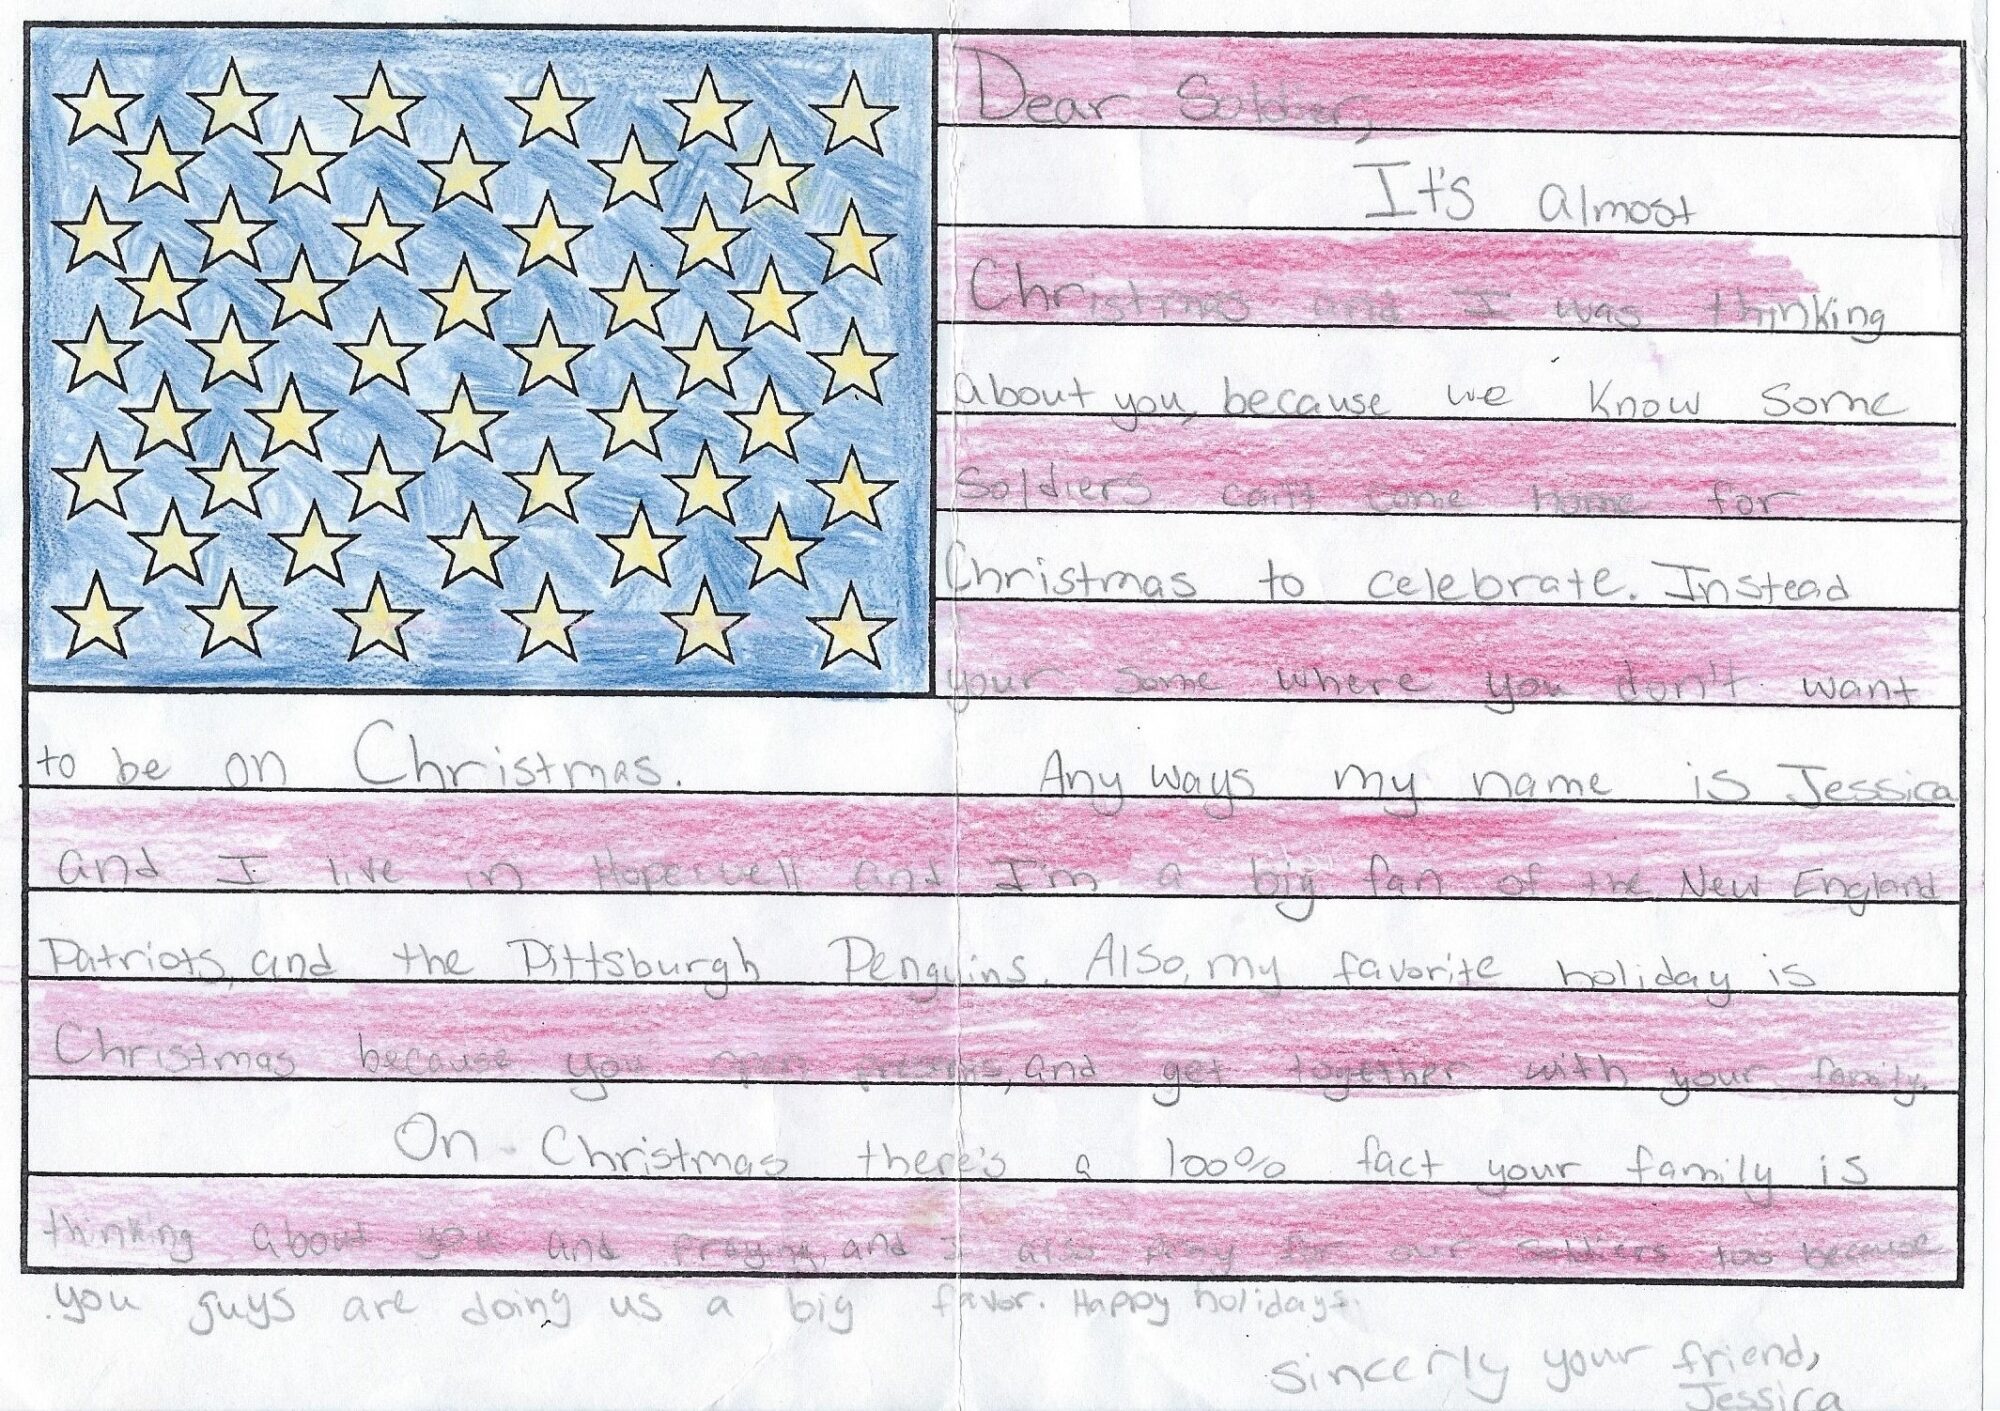 Dear Soldier,
It's almost
Christmas and I was thinking
about you, because we know some
soldiers can't come home for
Christmas to celebrate. Instead
your some where you don't want
to be on Christmas. Any ways my name is Jessica
and I live in Hopewell and I'm a big fan of the New England
Patriots, and the Pittsburgh Penguins. Also, my favorite holiday is
Christmas because you open presents, and get together with your family.
On Christmas there's a 100% fact your family is
thinking about you and praying, and I also pray for our soldiers too because
you guys are doing us a big favor. Happy holidays.
sincerly your friend,
Jessica